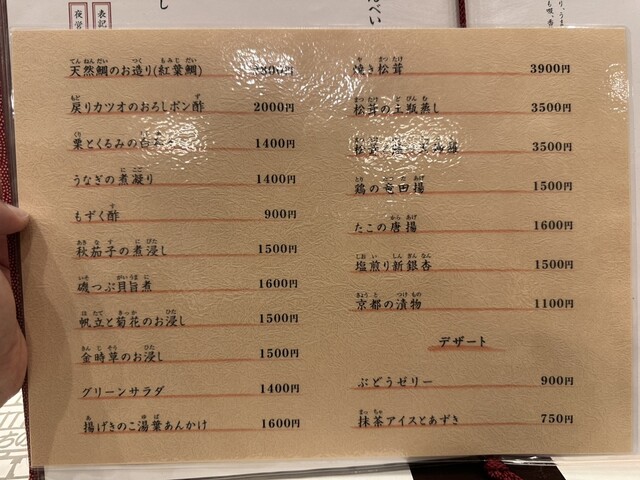 天然鯛のお造り(紅葉鯛) 800円
戻りカツオのおろしポン酢 2000円
栗とくるみの白 1400円
うなぎの煮凝り 1400円
もずく酢 900円
秋茄子の煮浸し 1500円
磯つぶ貝旨煮 1600円
帆立と菊花のお浸し 1500円
金時草のお浸し 1500円
グリーンサラダ 1400円
揚げきのこ湯葉あんかけ 1600円
焼き松茸 3900円
松茸の土瓶蒸し 3500円
松茸の 3500円
鶏の竜田揚 1500円
たこの唐揚 1600円
塩煎り新銀杏 1500円
京都の漬物 1100円
デザート
ぶどうゼリー 900円
抹茶アイスとあずき 750円